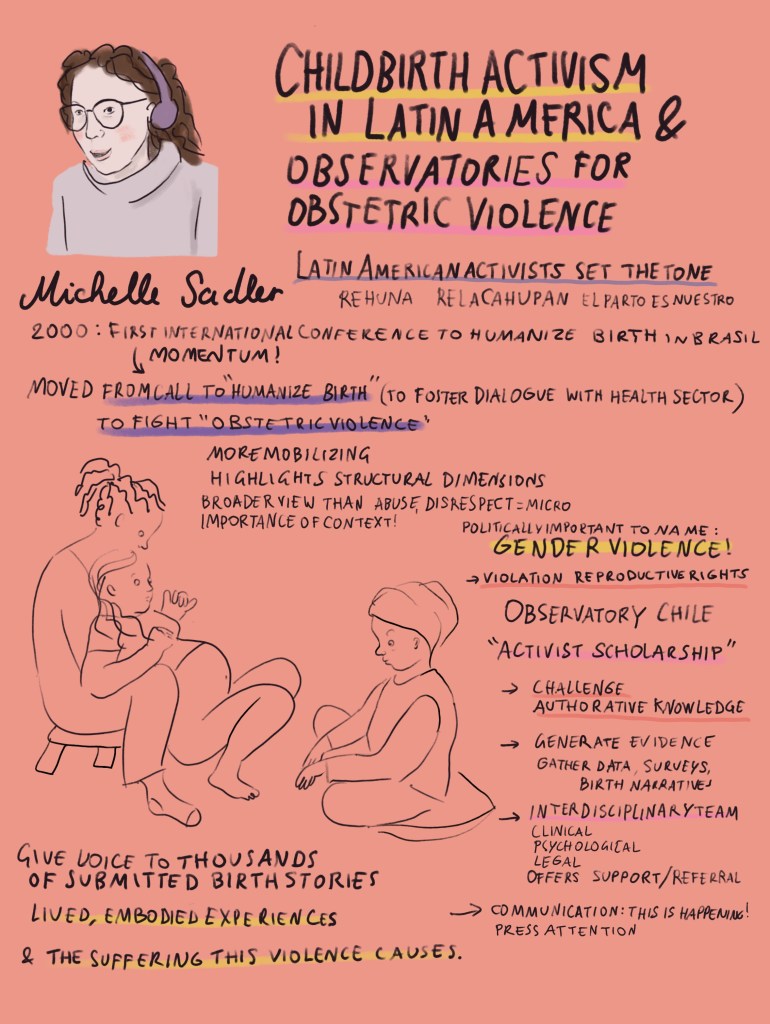 CHILDBIRTH ACTIVISM
IN LATIN AMERICA &
OBSERVATORIES FOR
OBSTETRIC VIOLENCE
Michelle Sadler
LATIN AMERICAN ACTIVISTS SET THE TONE
REHUNA RELACAHUPAN EL PARTO ES NUESTRO
2000: FIRST INTERNATIONAL CONFERENCE TO HUMANIZE BIRTH IN BRASIL
MOMENTUM!
MOVED FROM CALL TO "HUMANIZE BIRTH" (TO FOSTER DIALOGUE WITH HEALTH SECTOR)
TO FIGHT "OBSTETRIC VIOLENCE"
MORE MOBILIZING
HIGHLIGHTS STRUCTURAL DIMENSIONS
BROADER VIEW THAN ABUSE, DISRESPECT = MICRO
IMPORTANCE OF CONTEXT!
POLITICALLY IMPORTANT TO NAME:
GENDER VIOLENCE!
→ VIOLATION REPRODUCTIVE RIGHTS
OBSERVATORY CHILE
"ACTIVIST SCHOLARSHIP"
→ CHALLENGE
AUTHORATIVE KNOWLEDGE
→ GENERATE EVIDENCE
GATHER DATA, SURVEYS,
BIRTH NARRATIVES
→ INTERDISCIPLINARY TEAM
CLINICAL
PSYCHOLOGICAL
LEGAL
OFFERS SUPPORT/REFERRAL
→ COMMUNICATION: THIS IS HAPPENING!
PRESS ATTENTION
GIVE VOICE TO THOUSANDS
OF SUBMITTED BIRTH STORIES
LIVED, EMBODIED EXPERIENCES
& THE SUFFERING THIS VIOLENCE CAUSES.